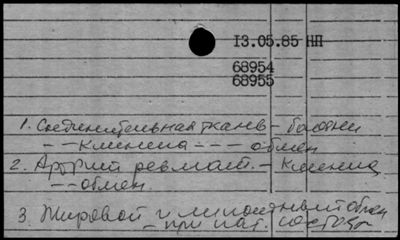 13.05.85 НП
68954
68955
1. Соединительная ткань - болезни
- - клиника - - - обмен
2. Артрит ревмат. - клиника
- - обмен
3. Жировой и липоидный обмен
- при пат. сост.